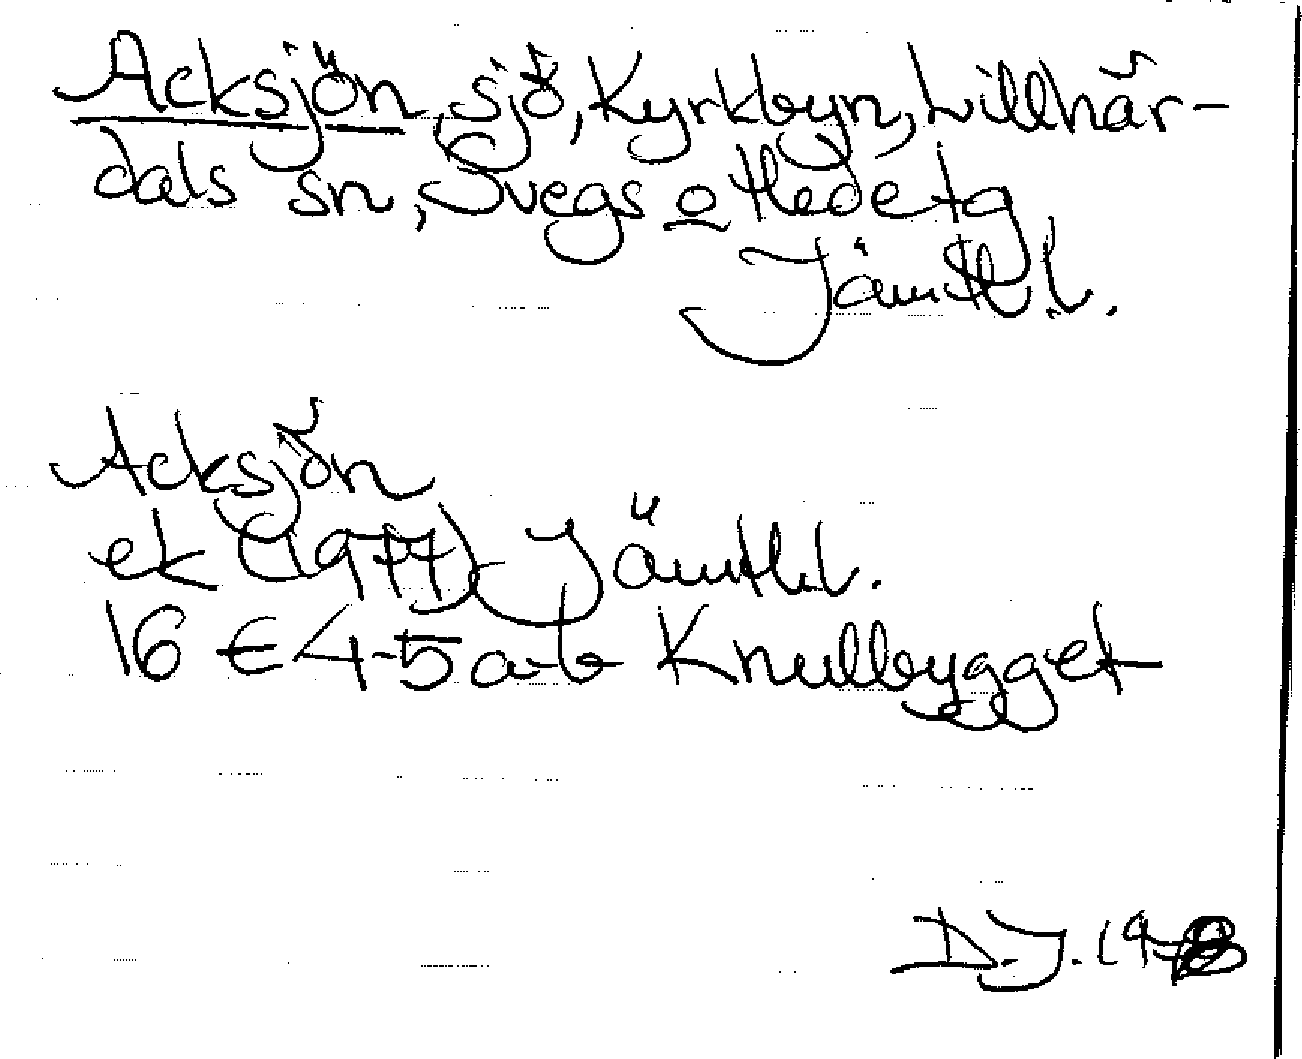 Acksjön, sjö, Kyrkbyn, Lillhär-
dals sn, Svegs o Hede tg
Jämtl. l.
Acksjön
ek (1977) Jämtl.l.
16 E 4-5 a-b Knullbygget
D.J. 1978